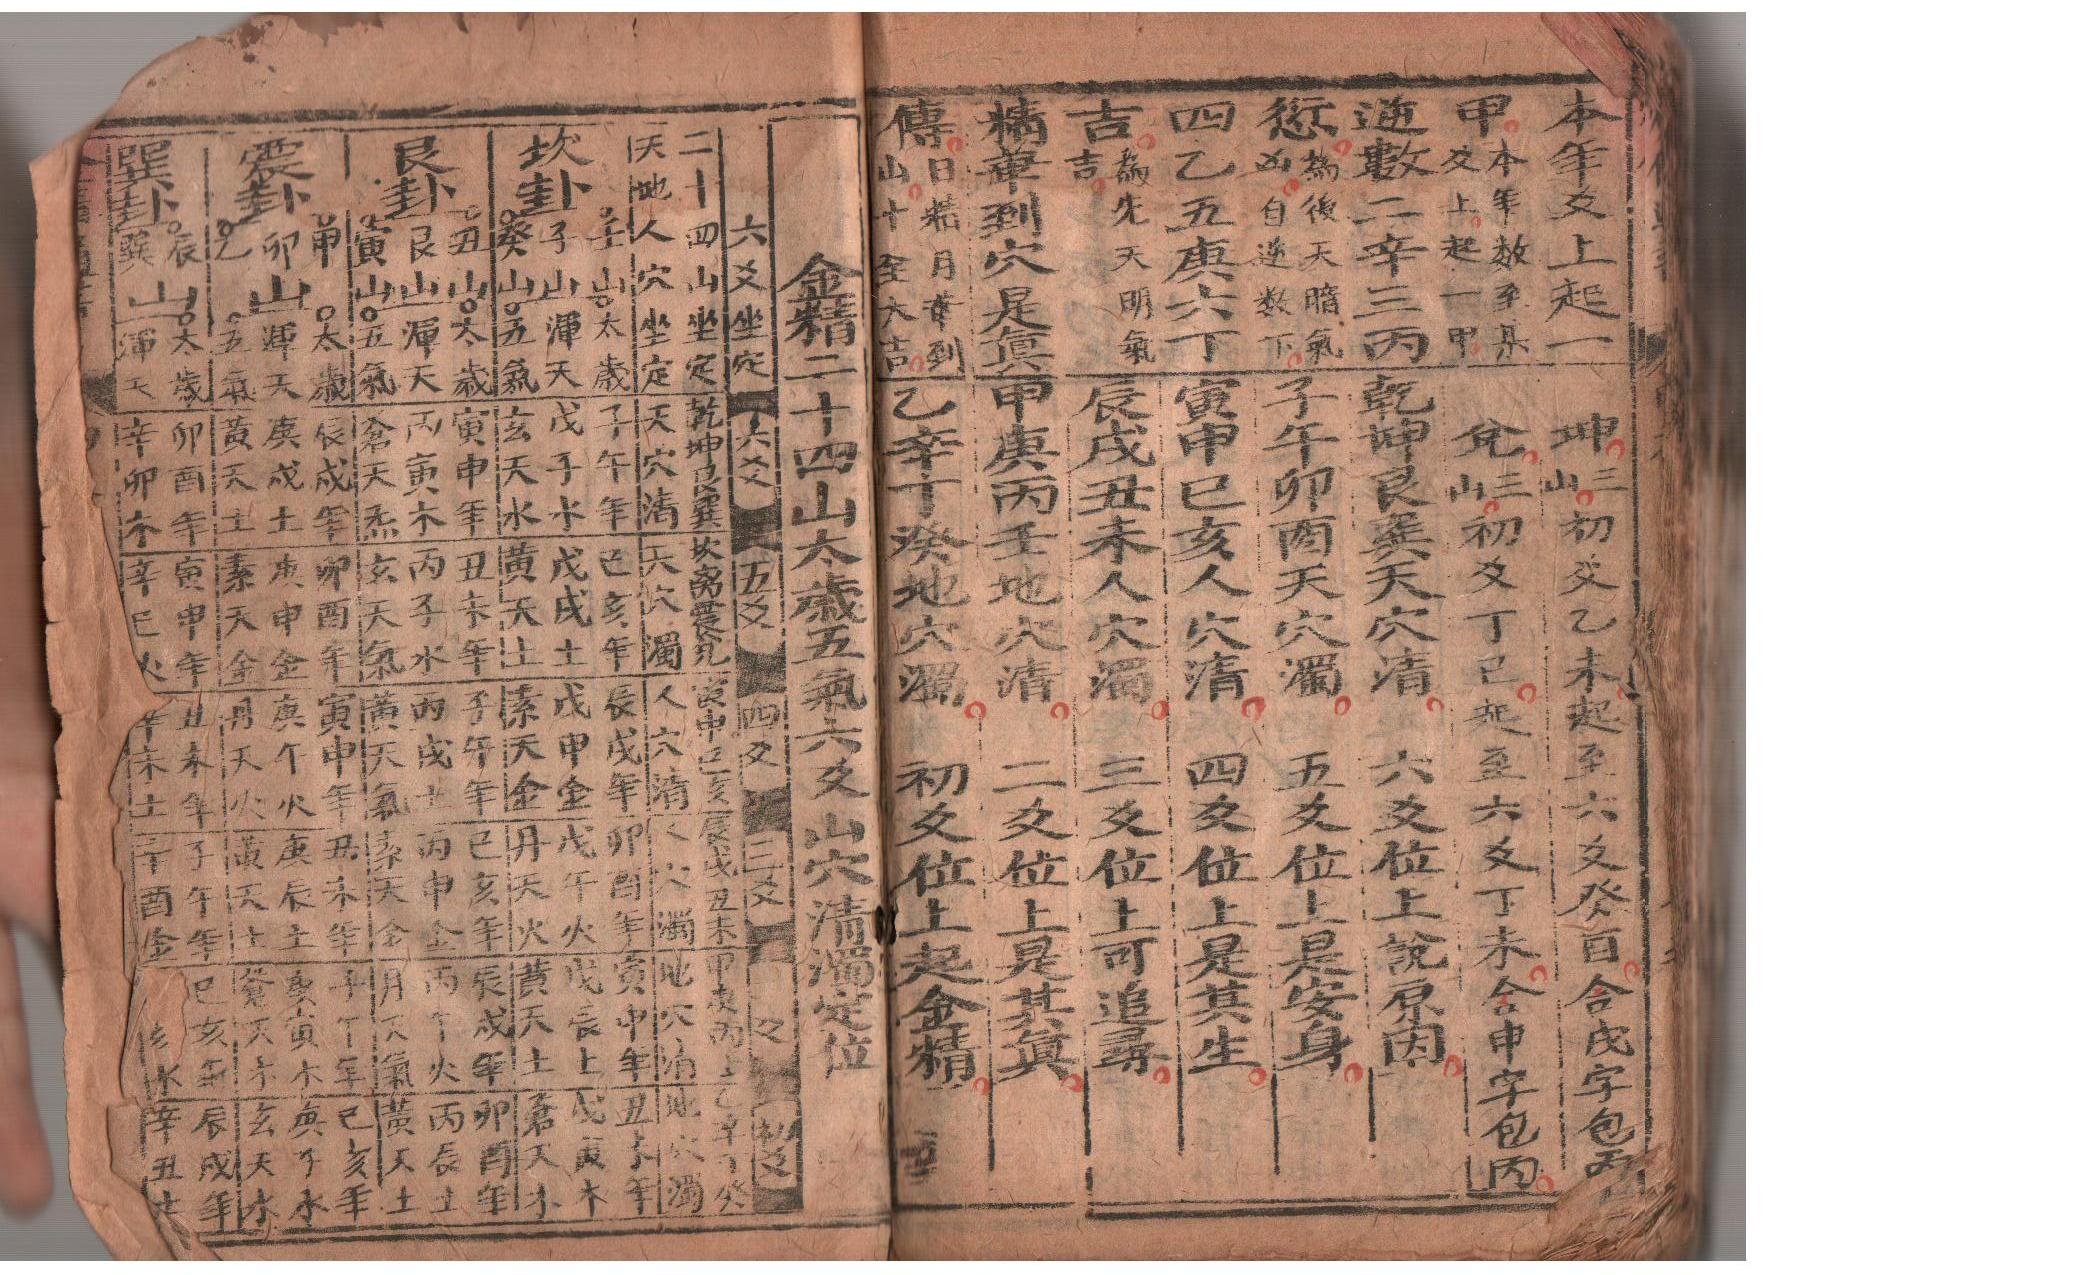 本年爻上起一
坤山三初爻乙未起至六爻癸酉合戌字包
甲本年数至某爻上起一甲
兌山三初爻丁巳起至六爻丁未合申字包丙
逆數二辛三丙
乾坤艮巽天穴清
六爻位上說原因
愆為後天暗氣凶自逆数下
子午卯酉天穴濁
五爻位上是安身
四乙五庚六丁
寅申巳亥人穴清
四爻位上是其生
吉為先天明氣吉
辰戌丑未人穴濁
三爻位上可追尋
精華到穴是真
甲庚丙壬地穴清
二爻位上是其真
傳日精月華到山十全大吉
乙辛丁癸地穴濁
初爻位上起金精
金精二十四山太歲五氣六爻山穴清濁定位
六爻坐定
六爻
五爻
四爻
三爻
初爻
二十四山坐定
乾坤艮巽
坎离震兌
寅申巳亥
辰戌丑未
甲庚丙
乙辛丁癸
天地人穴坐定
天穴清
天穴濁
人穴清
人穴濁
地穴清
地穴濁
坎卦
壬山太歲
子午年
巳亥年
辰戌年
卯酉年
寅申年
丑未年
子山渾天
戊子水
戊戌土
戊申金
戊午火
戊辰土
戊寅木
癸山五氣
玄天水
黃天土
素天金
丹天火
黃天土
蒼天木
艮卦
丑山太歲
寅申年
丑未年
子午年
巳亥年
辰戌年
卯酉年
艮山渾天
丙寅木
丙子水
丙戌土
丙申金
丙午火
丙辰土
寅山五氣
倉天炁
玄天氣
黃天氣
素天金
丹天氣
黃天土
震卦
甲山太歲
辰戌年
卯酉年
寅申年
丑未年
子午年
巳亥年
卯山渾天
庚戌土
庚申金
庚午火
庚辰土
庚寅木
庚子水
乙山五氣
黃天土
素天金
丹天火
黃天土
蒼天木
玄天水
巽卦
辰山太歲
卯酉年
寅申年
丑未年
子午年
巳亥年
辰戌年
巽山渾天
辛卯木
辛巳火
辛未土
辛酉金
亥水
辛丑土